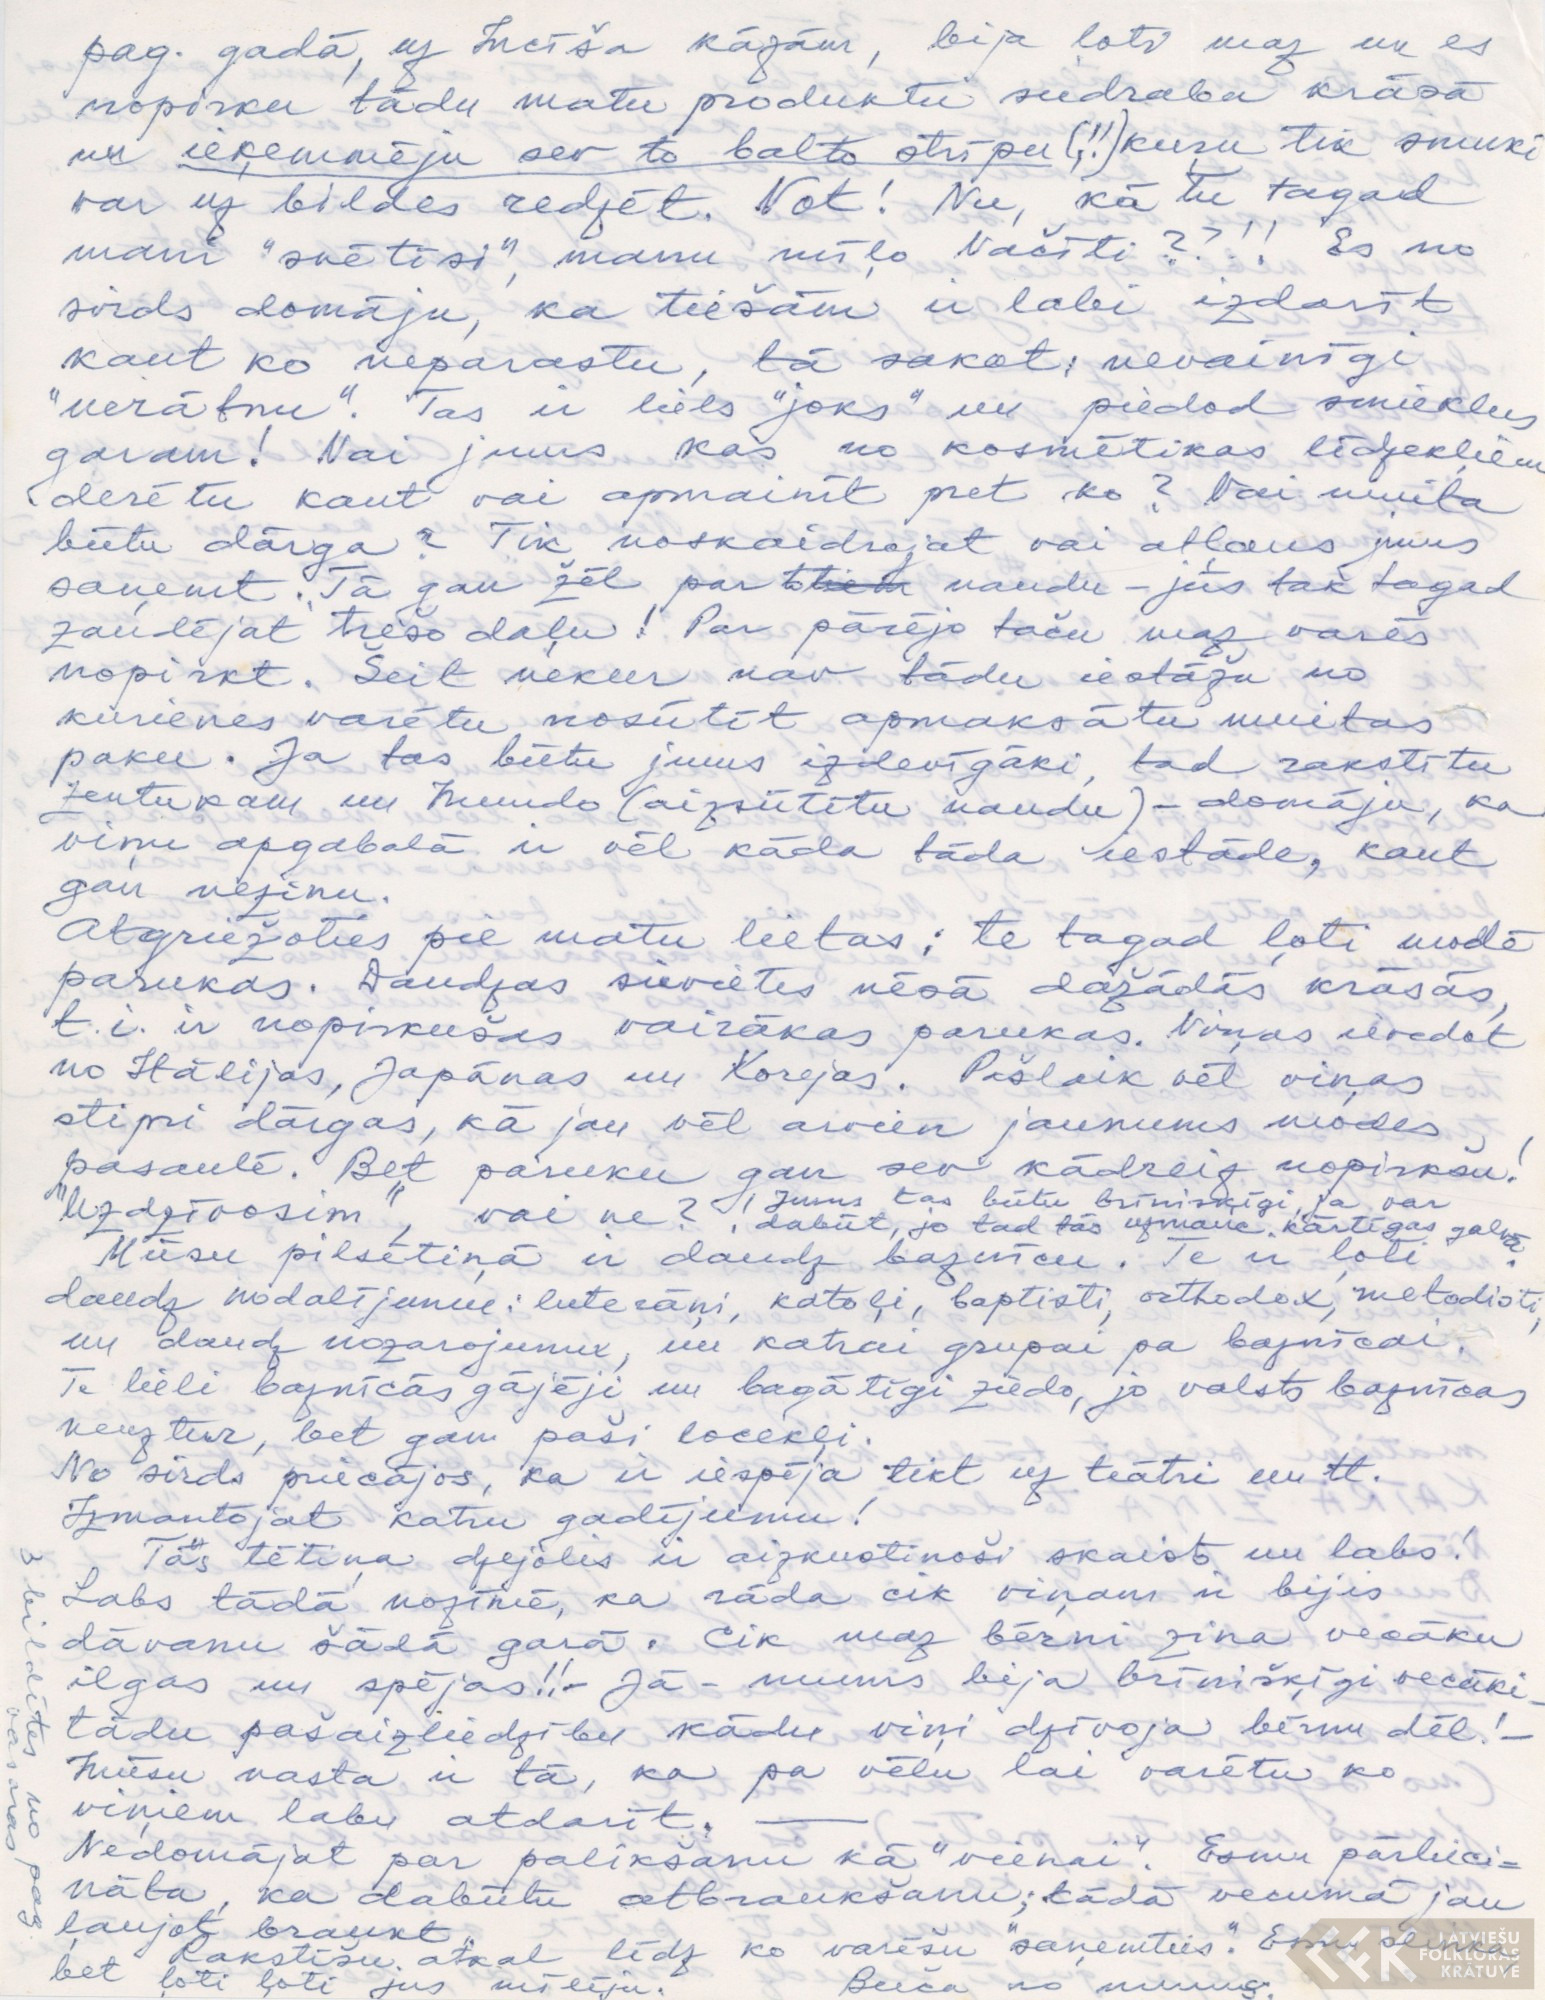 pag. gadā, uz Incīša kāzām, bija ļoti maz un es
nopirku tādu matu produktu sudraba krāsā
un ieķemmēju sev to balto strīpu (!!) kuru tik smuki
var uz bildes redzēt. Vot! Nu, kā tu tagad
mani "svētīsi", manu mīļo Vačīti??!! Es no
sirds domāju, ka tiešām ir labi izdarīt
kaut ko neparastu, tā sakot: nevainīgi
"nerātnu". Tas ir liels "joks" un piedod smieklus
garam! Vai jums kas no kosmētikas līdzekļiem
derētu kaut vai apmainīt pret ko? Vai muita
būtu dārga? Tik noskaidrojat vai atļaus jums
saņemt. Tā gan žēl par naudu - jūs tak tagad
zaudējat trešo daļu! Par pārējo taču maz varēs
nopirkt. Šeit nekur nav tādu iestāžu no
kurienes varētu nosūtīt apmaksātu muitas
paku. Ja tas būtu jums izdevīgāki, tad rakstītu
Zentukam un Imundo (aizsūtītu naudu) - domāju, ka
viņu apgabalā ir vēl kāda tāda iestāde, kaut
gan nezinu.
Atgriežoties pie matu lietas: te tagad ļoti modē
parukas. Daudzas sievietes nēsā dažādās krāsās,
t.i. ir nopirkušas vairākas parukas. Viņas ievedot
no Itālijas, Japānas un Korejas. Pašlaik vēl viņas
stipri dārgas, kā jau vēl arvien jaunums modes
pasaulē. Bet paruku gan sev kādreiz nopirkšu!
"Uzdzīvosim", vai ne? ! Jums tas būtu brīnišķīgi, ja var
dabūt, jo tad tās uzmauc kārtīgas galvā.
Mūsu pilsētiņā ir daudz baznīcu. Te ir ļoti
daudz nodalījumu: luterāņi, katoļi, baptisti, orthodox, metodisti,
un daudz nozarojumu, un katrai grupai pa baznīcai.
Te lieli baznīcās gājēji un bagātīgi ziedo, jo valsts baznīcas
neuztur, bet gan paši locekļi.
No sirds priecājos, ka ir iespēja tikt uz teātri un tt.
Izmantojat katru gadījumu!
Tās tētiņa dzejolis ir aizkustinoši skaists un labs!
Labs tādā nozīmē, ka rāda cik viņam ir bijis
dāvanu šādā garā. Cik maz bērni zina vecāku
ilgas un spējas!! - Jā - mums bija brīnišķīgi vecāki -
tādu pašaizliedzību kādu viņi dzīvoja bērnu dēļ! -
Mūsu nasta ir tā, ka pa vēlu lai varētu ko
viņiem labu atdarīt. —
Nedomājat par palikšanu kā "vienai". Esmu pārlieci=
nāta, ka dabūtu atbraukšanu; tādā vecumā jau
ļaujot braukt.
Rakstīšu atkal līdz ko varēšu "saņemties". Esmu
bet ļoti ļoti jūs mīlēju. Buča no mums.
3 bildītes no pag.
vasaras
LATVIEŠU
FOLKLORAS
KRĀTUVE